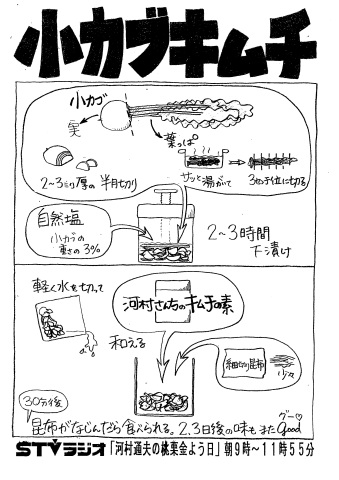 小カブキムチ
小カブ
実
葉っぱ
2~3ミリ厚の 半月切り
サッと湯がいて
3センチ位に切る
自然塩
小カブの
重さの3%
2~3時間
下漬け
軽く水を切って
河村さんちのキムチの素
和える
細切り昆布
少々
30分後
昆布がなじんだら食べられる。2、3日後の味も またgood
グー♡
STVラジオ「河村通夫の桃栗金よう日」朝9時~11時55分